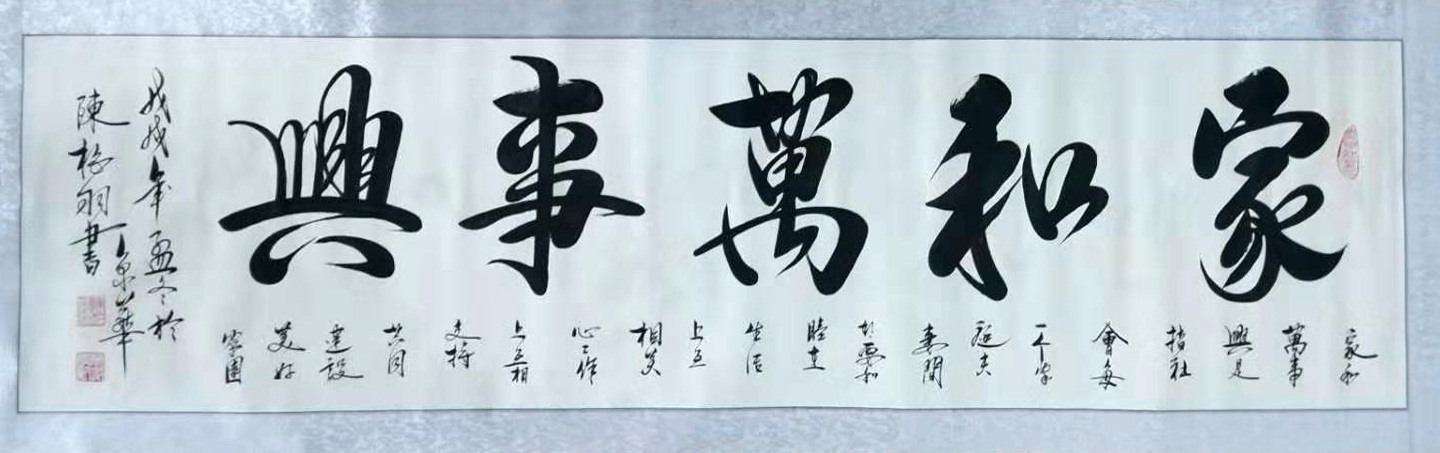 家和萬事興
家和
萬事
興是
指社
會每
一个家
庭夫
妻間
都要和
睦去
生活
上互
相关
心工作
上互相
支持
共同
建设
美好
家園
戊戌年孟冬於
京華
陳梅羽書